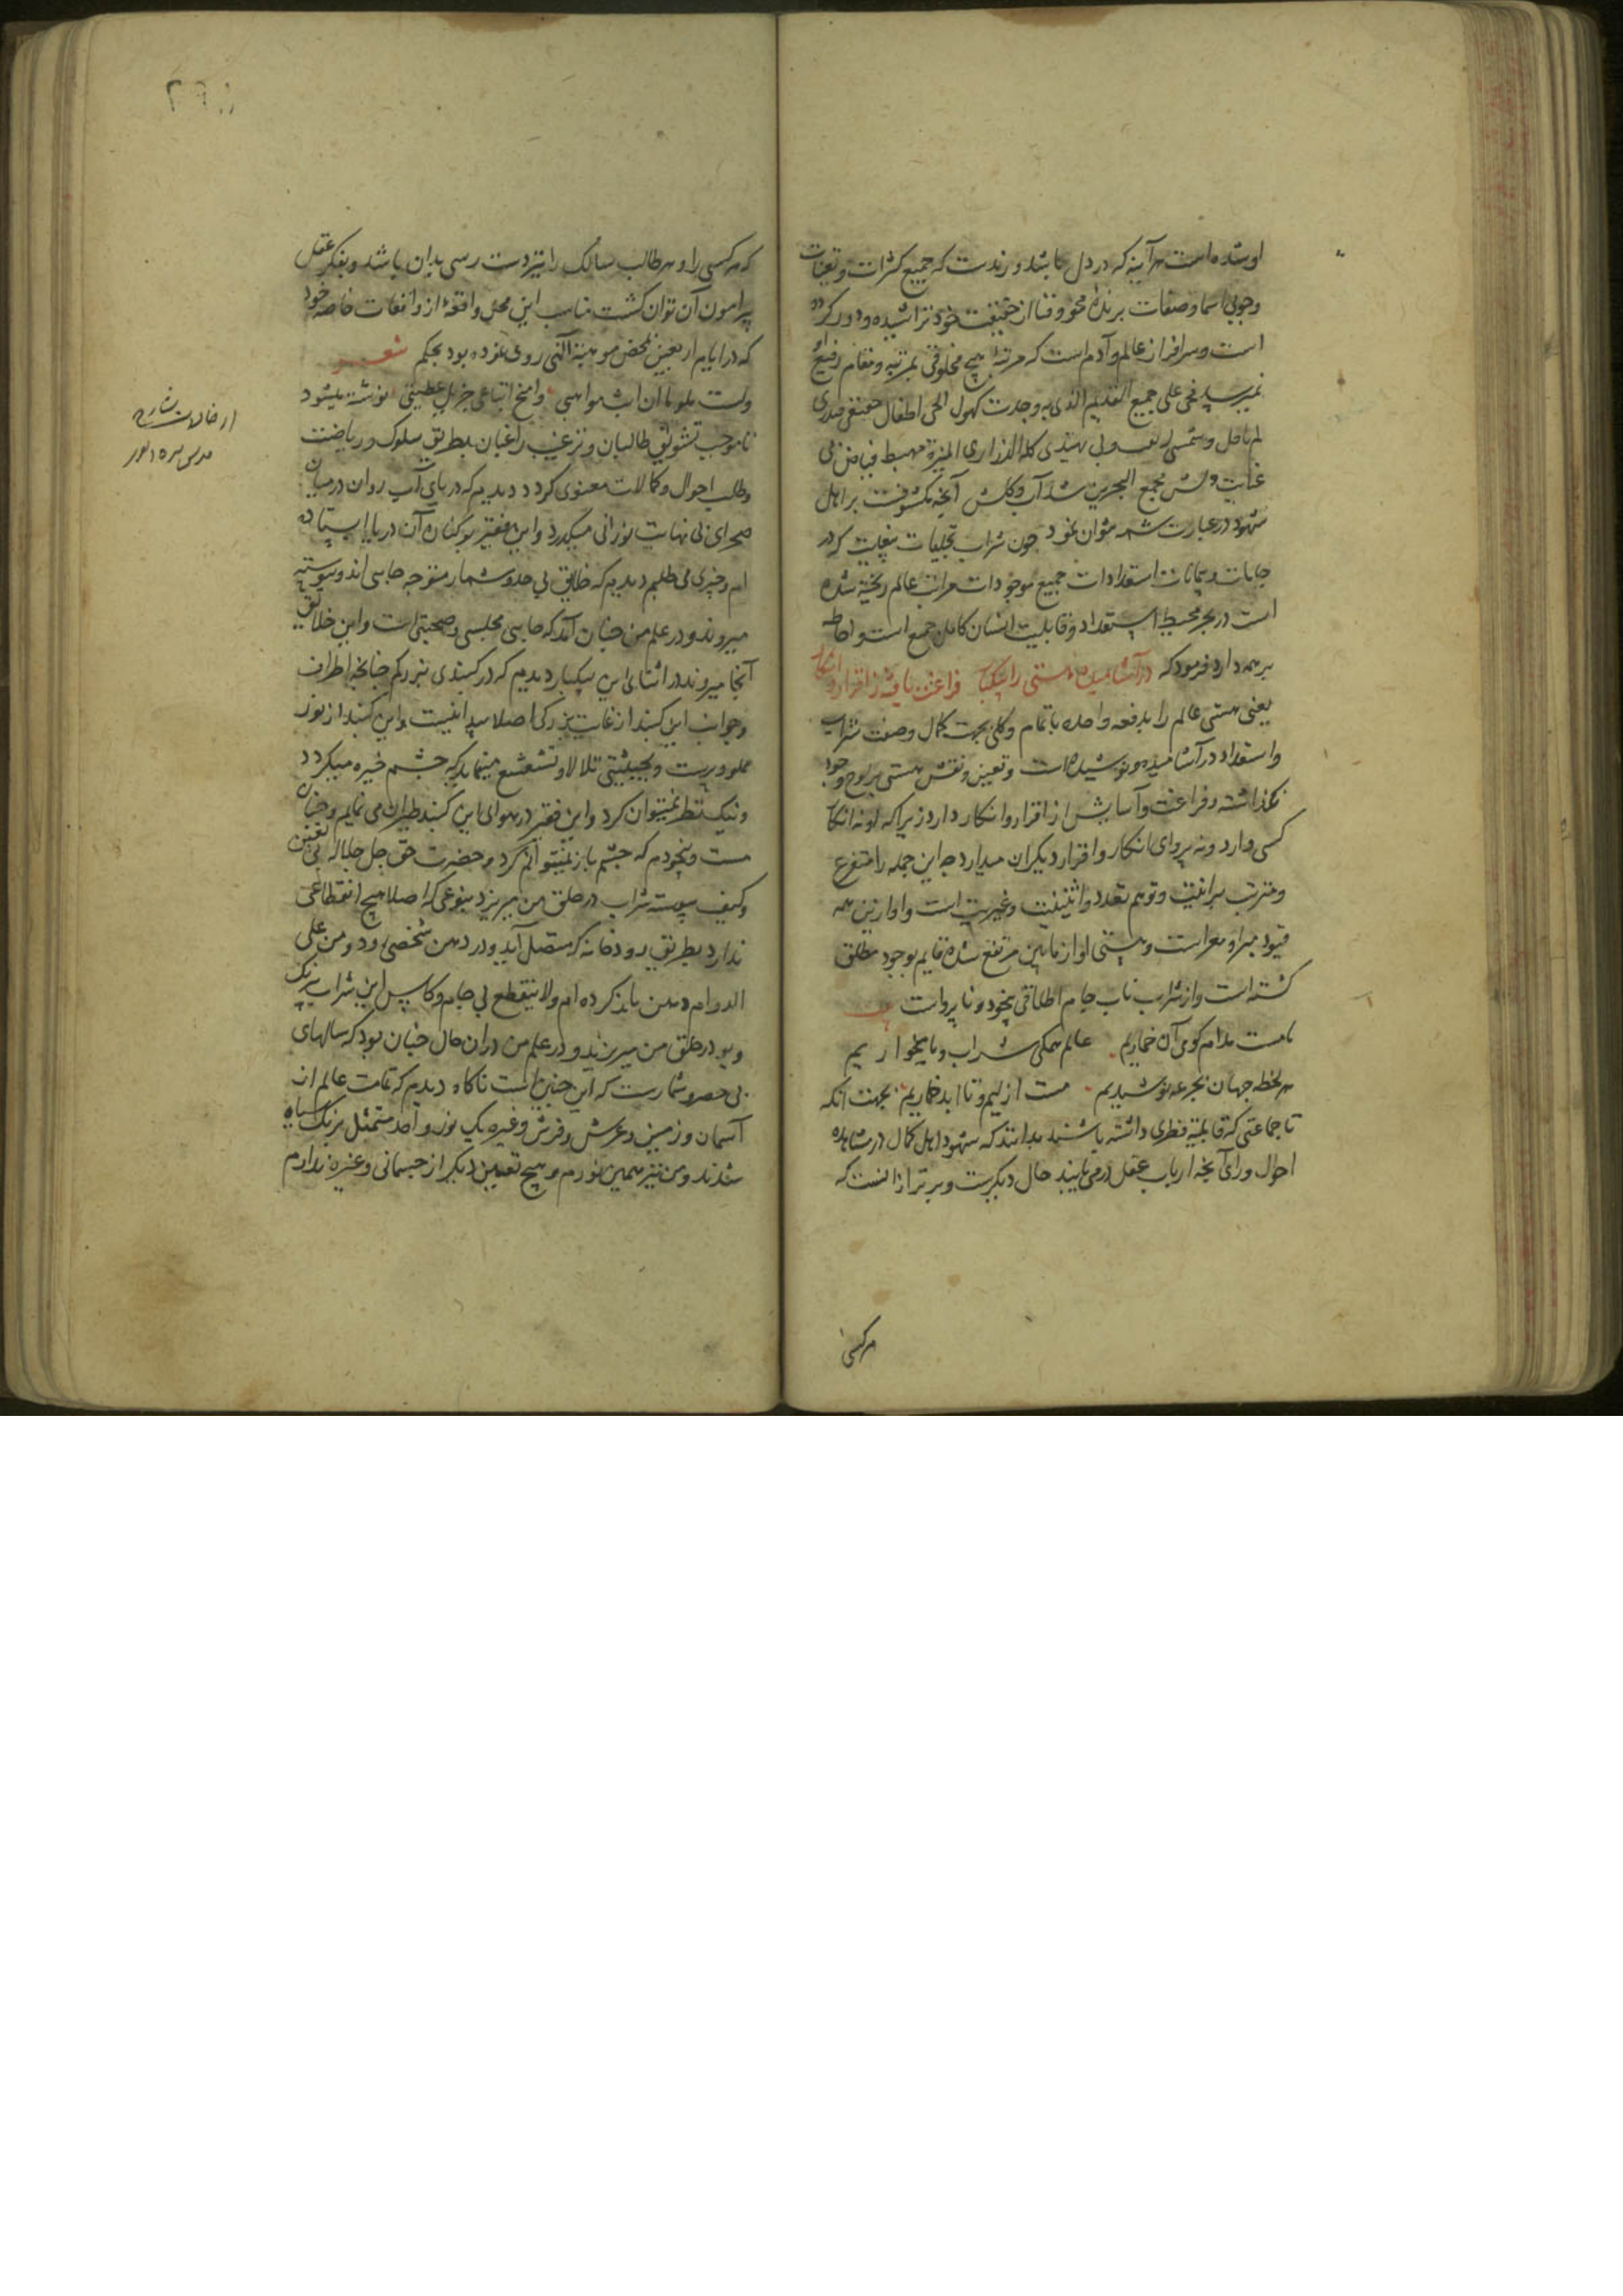 اوشده است هرآینه که در دل ما باشد و رندست که جمیع کثرات و تعینات
وجوبی اسما و صفات برنده محو و فنا از حقیقت خود تراشیده و دور کرده
است و سرافراز عالم و آدم است که مرتبه هیچ مخلوقی بمرتبه و مقام رفیع
نمیرسد فی علی جمیع القدیم الذی به وجدت کهول الحی اطفال
لم یافل و شمسی لم یغب وبی یهتدی کل الدراری المنیرة مهبط فیاض بی
غایت دلش مجمع البحرین شد آب و کلش آنچه مکشوفست بر اهل
شهود در عبارت شمه نتوان نمود چون شراب تجلیات که در
جامات و پیمانات استعدادات جمیع موجودات مراتب عالم ریخته شده
است در بحر محیط استعداد و قابلیت انسان کامل جمع است و احاطه
بر همه دارد فرمود که درآشامیده هستی را بیکبار فراغت یافته ز اقرار و انکار
یعنی هستی عالم را بدفعه واحده بتمام و کلی بجهت کمال وصف شراب
و استعداد درآشامیده و نوشیده است و تعین و نقش هستی بر لوح وجود
نگذاشته و فراغت و آسایش از اقرار و انکار دارد زیرا که او نه انکار
کسی دارد و نه پروای انکار و اقرار دیکران میدارد چه این جمله را متفرع
و مترتب بر انیت و توهم تعدد و اثنینیت و غیریت است و او ازین همه
قیود مبرا و معراست و هستی او از مابین مرتفع شده قایم بوجود مطلق
کشته است و از شراب ناب جام اطلاقی بیخود و ناپرواست
ما مست مدام کوی آن خماریم عالم همکی شراب و ما میخواریم
هر لحظه جهان بجرعه نوشیدیم مست ازلیم و تا ابد خماریم بجهت انکه
تا جماعتی که قابلیة فطری داشته باشند بدانند که شهود اهل کمال در مشاهده
احوال ورای آنچه ارباب عقل درمی یابند حال دیکرست و برتر ازانست که
هر کسی
که هر کسی را و هر طالب سالک را نیز دست رسی بدان باشد و بفکر عقل
پیرامون آن توان کشت مناسب این محل واقعهٔ از واقعات خاصه خود
که در ایام اربعین بمحض موهبة الهی روی نموده بود بحکم شعر
ولست ملوما ان ابث مواهبی وامنح اتباعی جزیل عطیتی نوشته میشود
تا موجب تشویق طالبان و ترغیب راغبان بطریق سلوک و ریاضت
و طلب احوال و کمالات معنوی کردد دیدم که دریای آب روان در میان
صحرای بی نهایت نورانی میکذرد و این فقیر بر کنار آن دریا ایستاده
ام و چیزی می طلبم دیدم که خلایق بی حد و شمار متوجه جایی اند و پیوسته
میروند و در علم من چنان آمد که جایی مجلسی و صحبتی است و این خلایق
آنجا میروند در اثنای این بیکبار دیدم که در کنبدی بزرکم چنانچه اطراف
و جوانب این کنبد از غایت بزرکی اصلا پیدا نیست و این کنبد از نور
مملو و پرست و بحیثیتی تلالا و تشعشع مینماید که چشم خیره میکردد
و نیک نظر نمیتوان کرد و این فقیر در هوای این کنبد طیران می نمایم و چنان
مست و بیخودم که چشم باز نمیتوانم کرد و حضرت حق جل جلاله بی تعین
و کیف پیوسته شراب در حلق من میریزد بنوعی که اصلا هیچ انقطاعی
ندارد بطریق رودخانه که متصل آید و در دهن شخصی رود و من علی
الدوام دهن باز کرده ام ولا ینقطع بی جام و کاس این شراب بیرنک
و بو در حلق من میریزند و در علم من دران حال چنان بود که سالهای
بی حصر و شمارست که این چنین است ناکاه دیدم که تمامت عالم از
آسمان و زمین و عرش و فرش و غیره یک نور واحد متمثل برنک سیاه
شدند و من نیز همین نورم و هیچ تعین دیکر از جسمانی و غیره ندارم
از حالات شارح